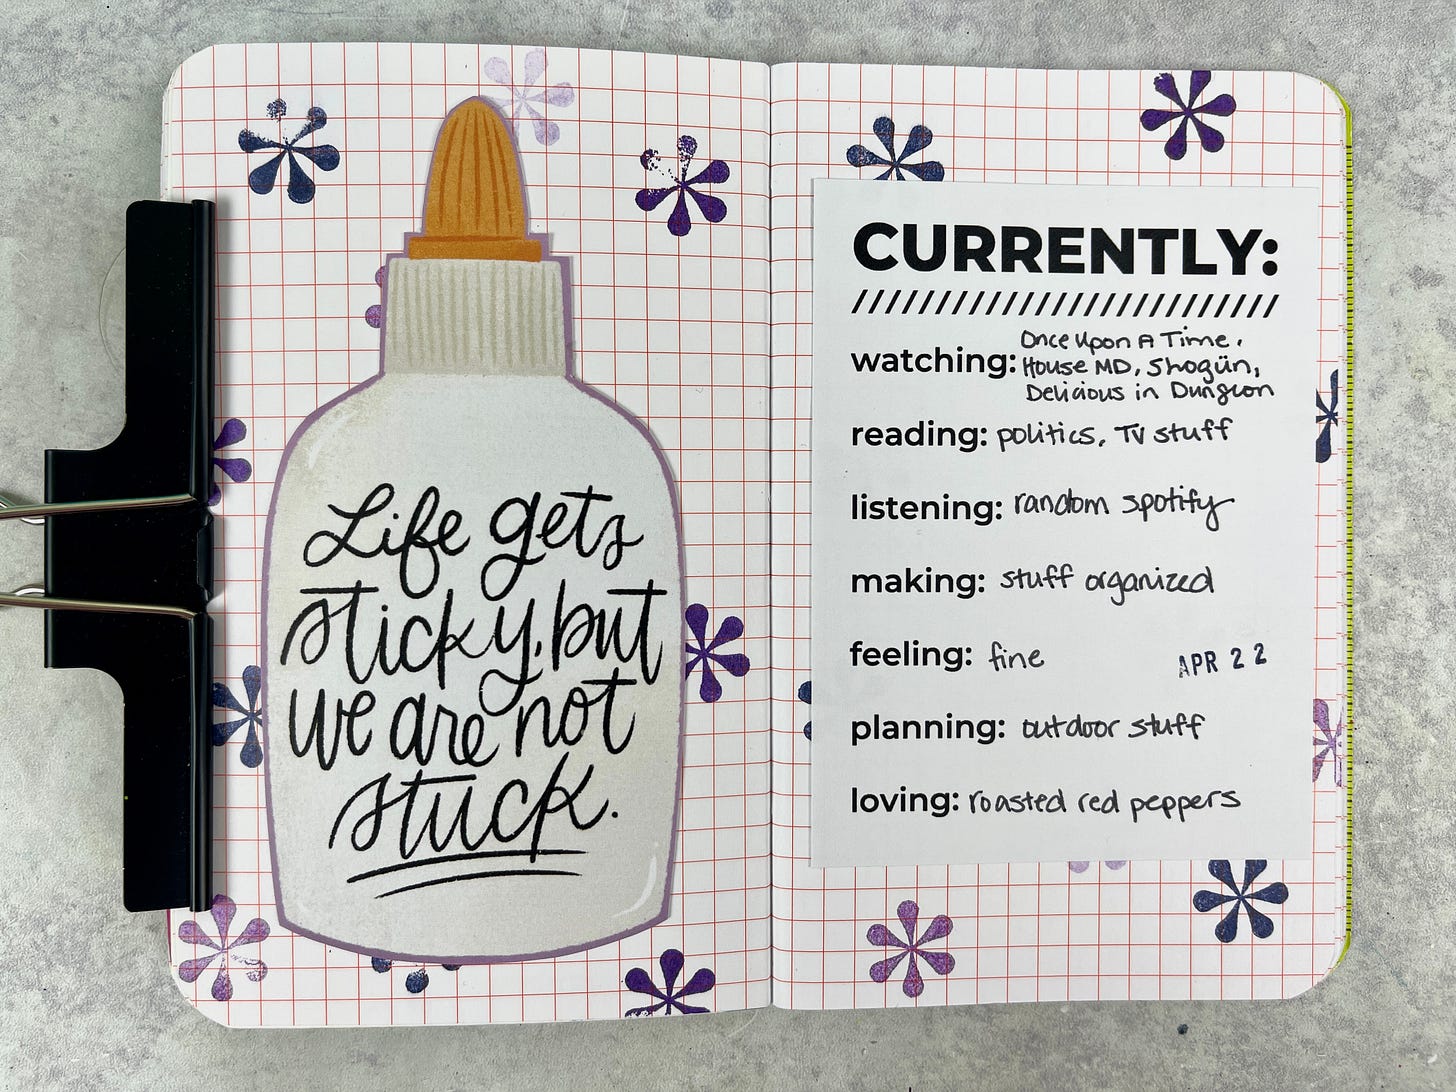 Life gets
sticky, but
we are not
stuck.
CURRENTLY:
watching: Once Upon A Time,
House MD, Shogün,
Delicious in Dungeon
reading: politics, TV stuff
listening: random spotify
making: stuff organized
feeling: fine
APR 22
planning: outdoor stuff
loving: roasted red peppers